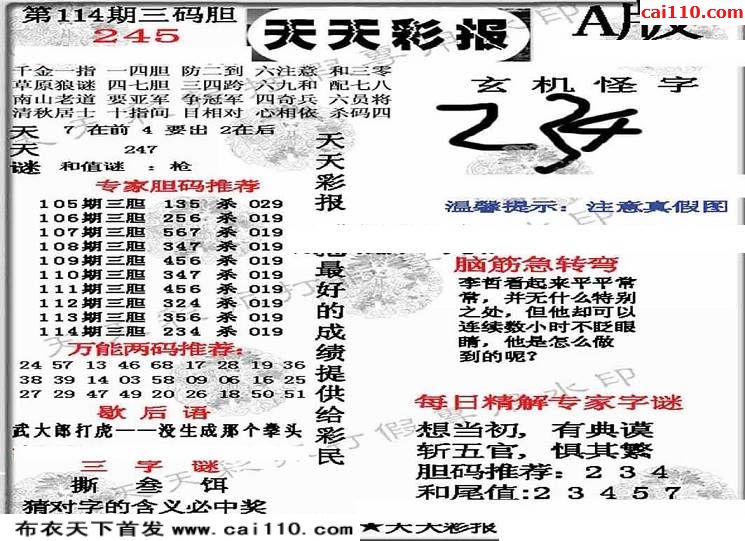 第114期三码胆
245
天天彩报
A版
cai110.com
千金一指 一四胆 防二到 六注意 和三零
草原狼谜 四七胆 三四跨 六九和 配七八
南山老道 要亚军 争冠军 四奇兵 六员将
清秋居士 十指间 目相对 心相依 杀码四
天天谜
7在前 4要出 2在后
247
和值谜：枪
专家胆码推荐
105期三胆 135 杀 029
106期三胆 256 杀 019
107期三胆 567 杀 019
108期三胆 347 杀 019
109期三胆 456 杀 019
110期三胆 347 杀 019
111期三胆 456 杀 019
112期三胆 324 杀 019
113期三胆 356 杀 019
114期三胆 234 杀 019
万能两码推荐：
24 57 13 46 68 17 28 19 36
38 39 14 03 58 09 06 16 25
27 29 47 49 20 26 18 50 51
歇后语
武大郎打虎——没生成那个拳头
三字谜
撕 叁 饵
猜对字的含义必中奖
天天彩报
把最好的成绩提供给彩民
玄机怪字
234
温馨提示：注意真假图
脑筋急转弯
李哲看起来平平常
常，并无什么特别
之处，但他却可以
连续数小时不眨眼
睛，他是怎么做
到的呢？
每日精解专家字谜
想当初，有典谟
斩五官，惧其繁
胆码推荐：234
和尾值：23457
布衣天下首发 www.cai110.com
★天天彩报